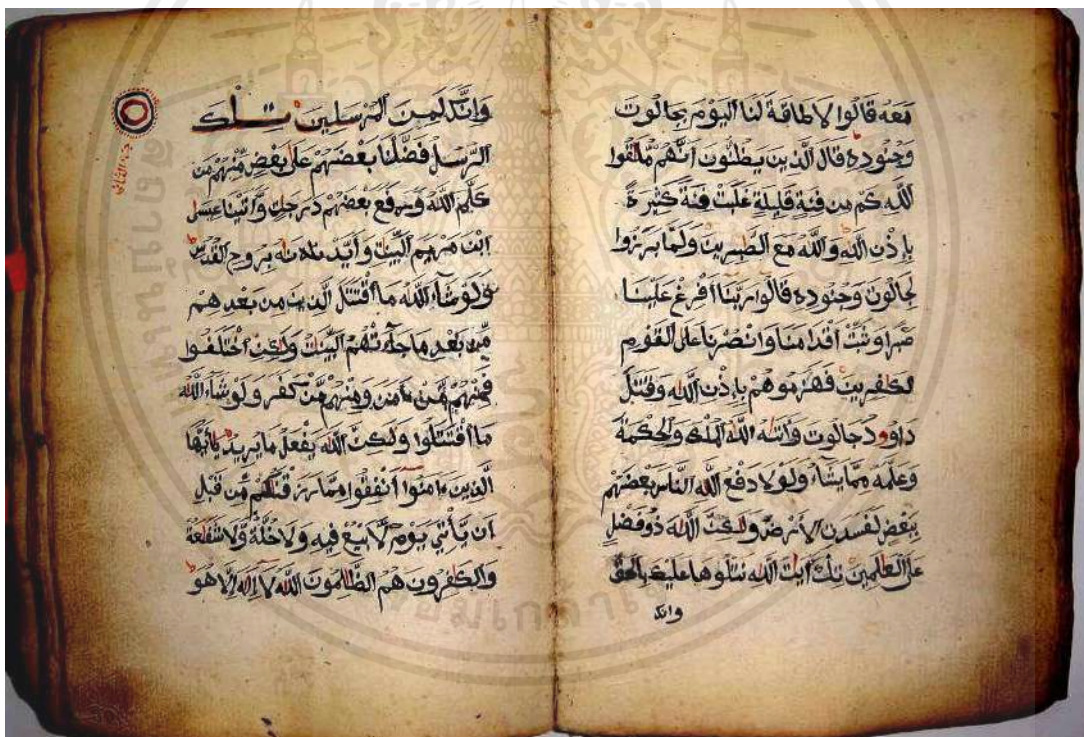 معه قالوا لا طاقة لنا اليوم بجالوت
وجنوده قال الذين يظنون انهم ملقوا
الله كم من فئة قليلة غلبت فئة كثيرة
بإذن الله والله مع الصبرين ولما برزوا
لجالوت وجنوده قالوا ربنا افرغ علينا
صبرا وثبت أقدامنا وانصرنا على القوم
لكفرين فهزموهم بإذن الله وقتل
داوود جالوت وءاتىه الله الملك والحكمة
وعلمه مما يشاء ولولا دفع الله الناس بعضهم
ببعض لفسدت الأرض ولكن الله ذو فضل
على العلمين تلك ءايت الله نتلوها عليك بالحق
وانك
وانك لمن المرسلين تلك
الرسل فضلنا بعضهم على بعض منهم من
كلم الله ورفع بعضهم درجت وءاتينا عيسى
ابن مريم البينت وأيدنه بروح القدس
ولو شاء الله ما اقتتل الذين من بعدهم
من بعد ما جاءتهم البينت ولكن اختلفوا
فمنهم من ءامن ومنهم من كفر ولو شاء الله
ما اقتتلوا ولكن الله يفعل ما يريد يأيها
الذين ءامنوا أنفقوا مما رزقنكم من قبل
ان يأتي يوم لا بيع فيه ولا خلة ولا شفعة
والكفرون هم الظلمون الله لا إله إلا هو